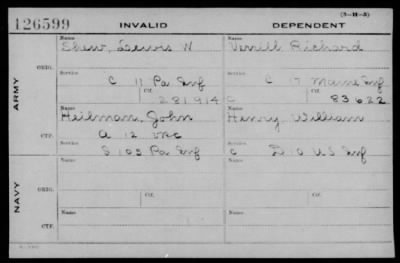 (3-H-3)
126599 INVALID DEPENDENT
Name Name
Shew, Lewis N Verrill Richard
ORIG.
Service Service
C 11 Pa Inf C 17 Maine Inf
Ctf. Ctf.
281914 C 83622
ARMY
Name Name
Heilman, John Henry William
CTF.
A 12 VRC
Service Service
S 105 Pa Inf C D 10 U S Inf
Name Name
ORIG.
Service Service
Ctf. Ctf.
NAVY
Name Name
CTF.
Service Service